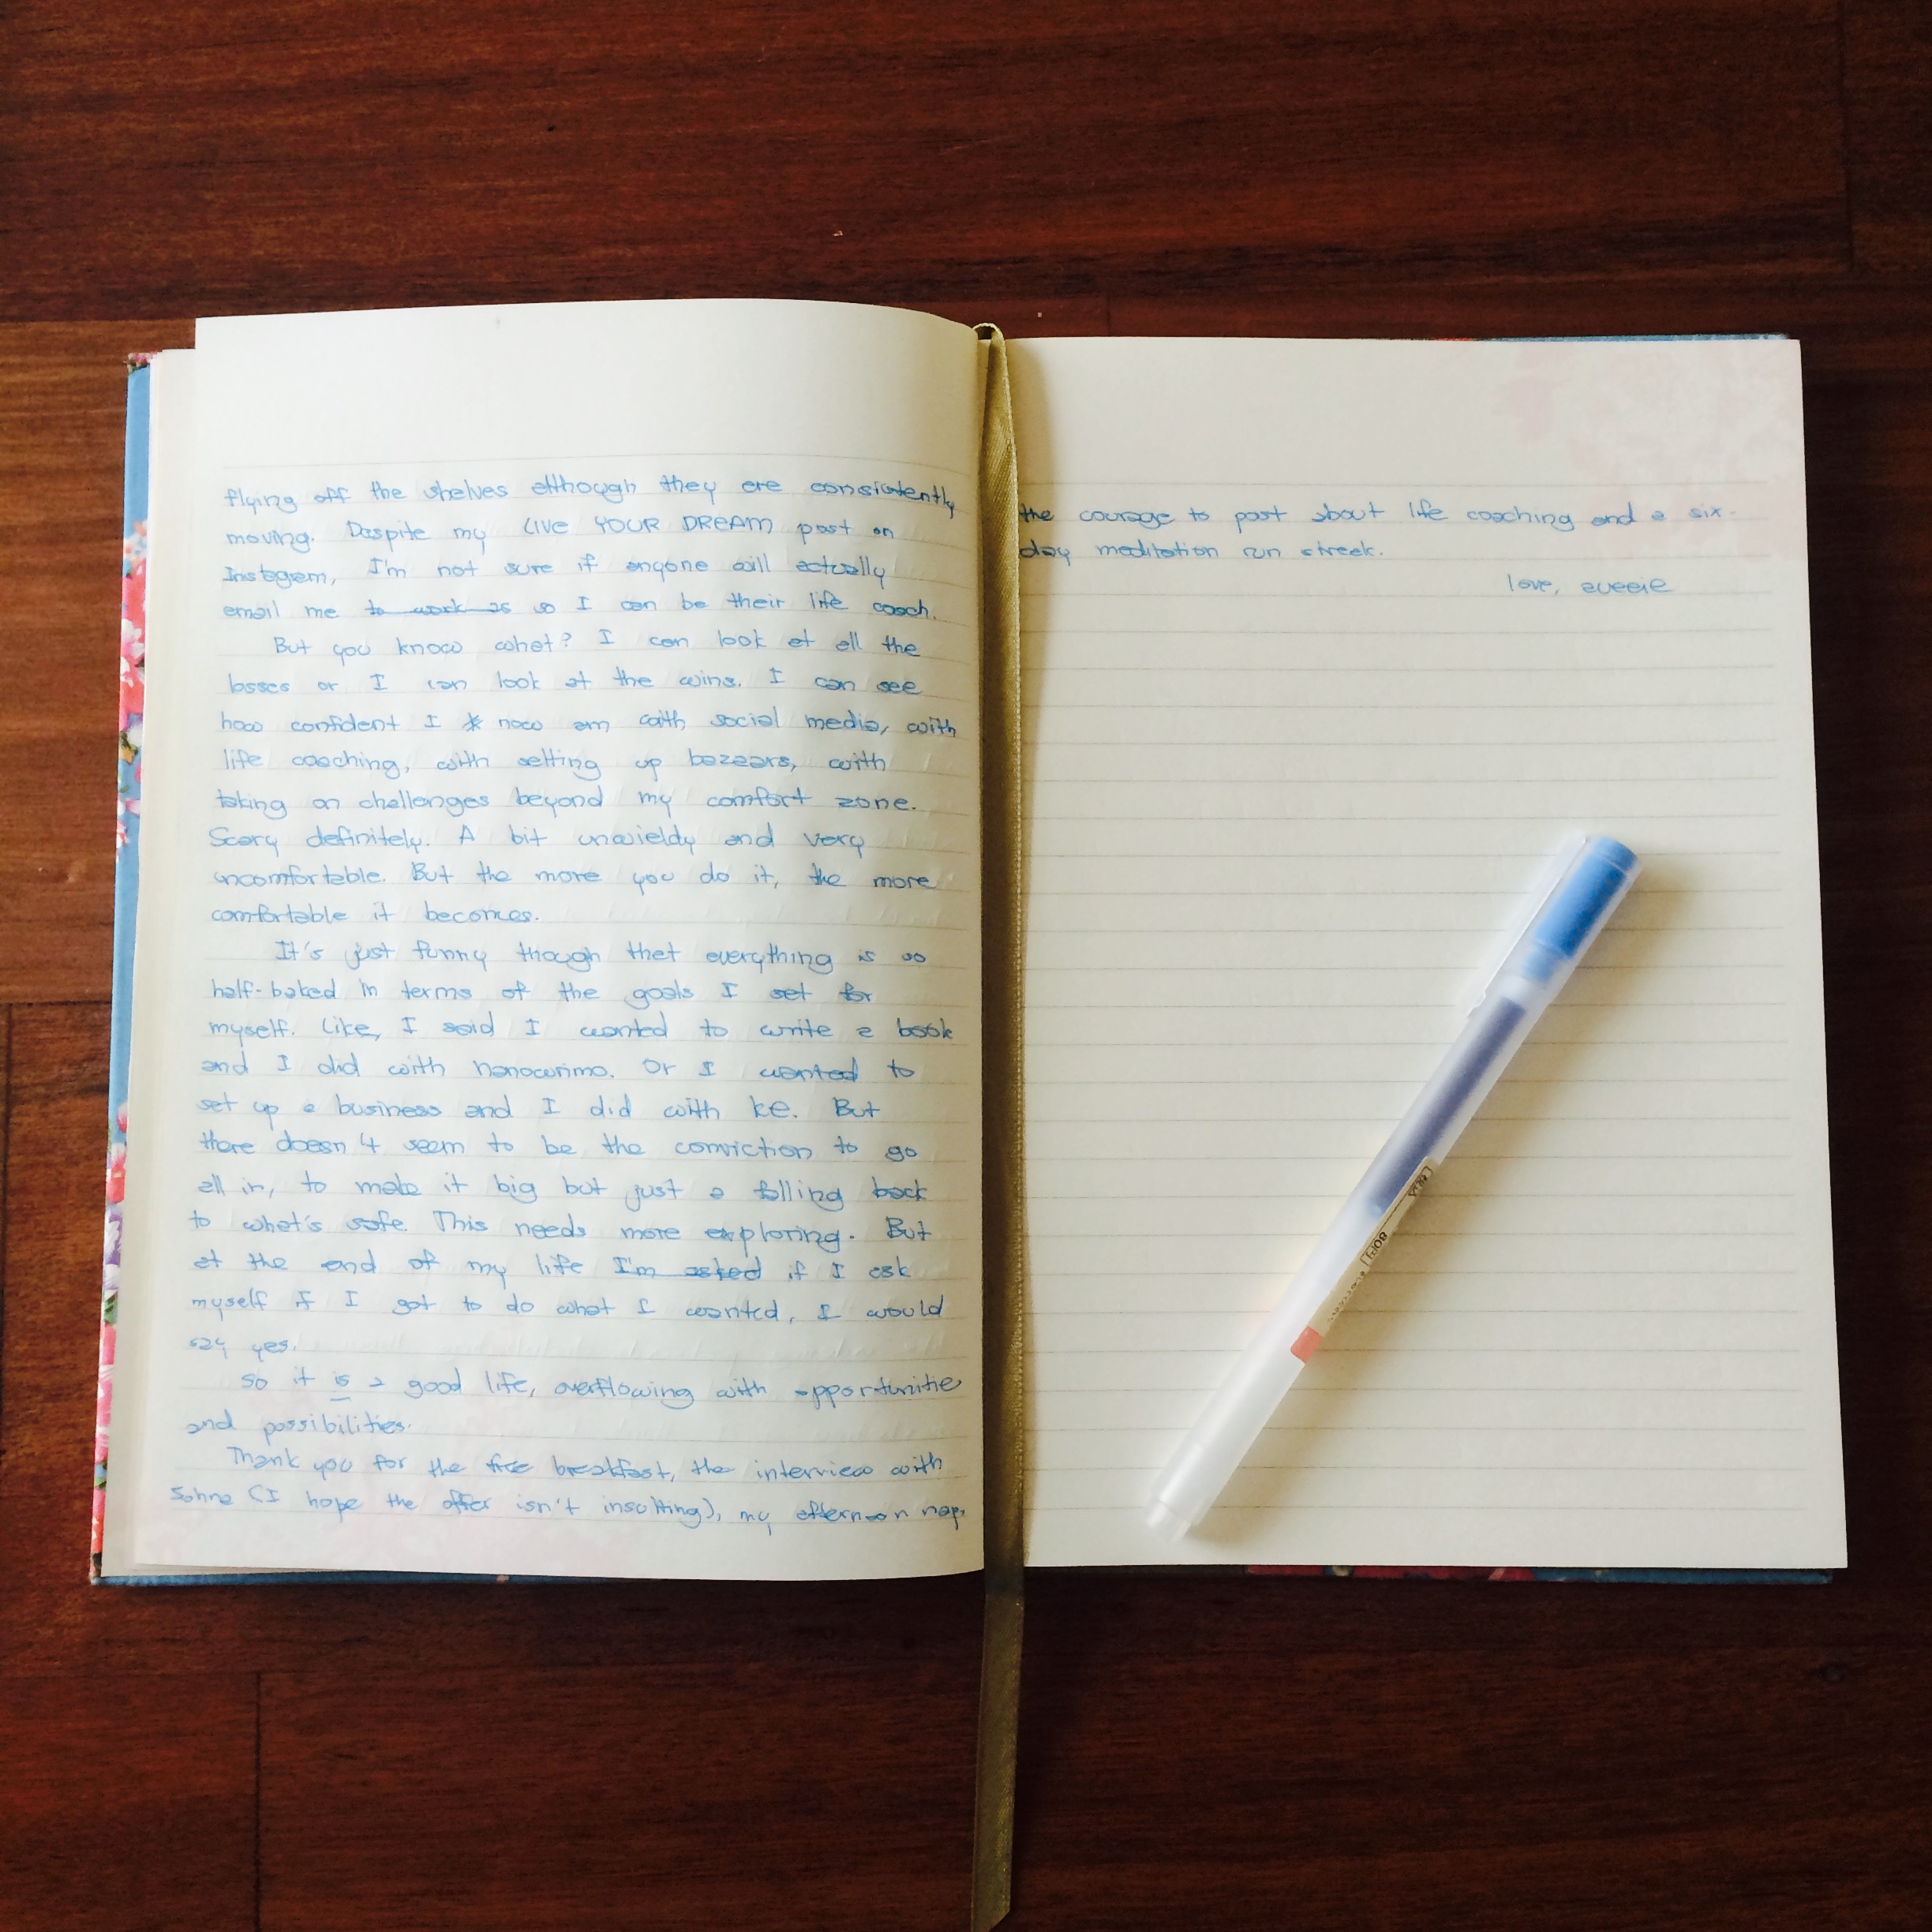 flying off the shelves although they are consistently
moving. Despite my LIVE YOUR DREAM post on
Instagram, I'm not sure if anyone will actually
email me to work as so I can be their life coach.
But you know what? I can look at all the
losses or I can look at the wins. I can see
how confident I now am with social media, with
life coaching, with setting up bazaars, with
taking on challenges beyond my comfort zone.
Scary definitely. A bit unwieldy and very
uncomfortable. But the more you do it, the more
comfortable it becomes.
It's just funny though that everything is so
half-baked in terms of the goals I set for
myself. Like, I said I wanted to write a book
and I did with nanowrimo. Or I wanted to
set up a business and I did with ke. But
there doesn't seem to be the conviction to go
all in, to make it big but just a falling back
to what's safe. This needs more exploring. But
at the end of my life I'm asked if I ask
myself if I got to do what I wanted, I would
say yes.
So it is a good life, overflowing with opportunitie
and possibilities.
Thank you for the free breakfast, the interview with
(I hope the offer isn't insulting), my afternoon nap,
the courage to post about life coaching and a six-
day meditation run streak.
love,